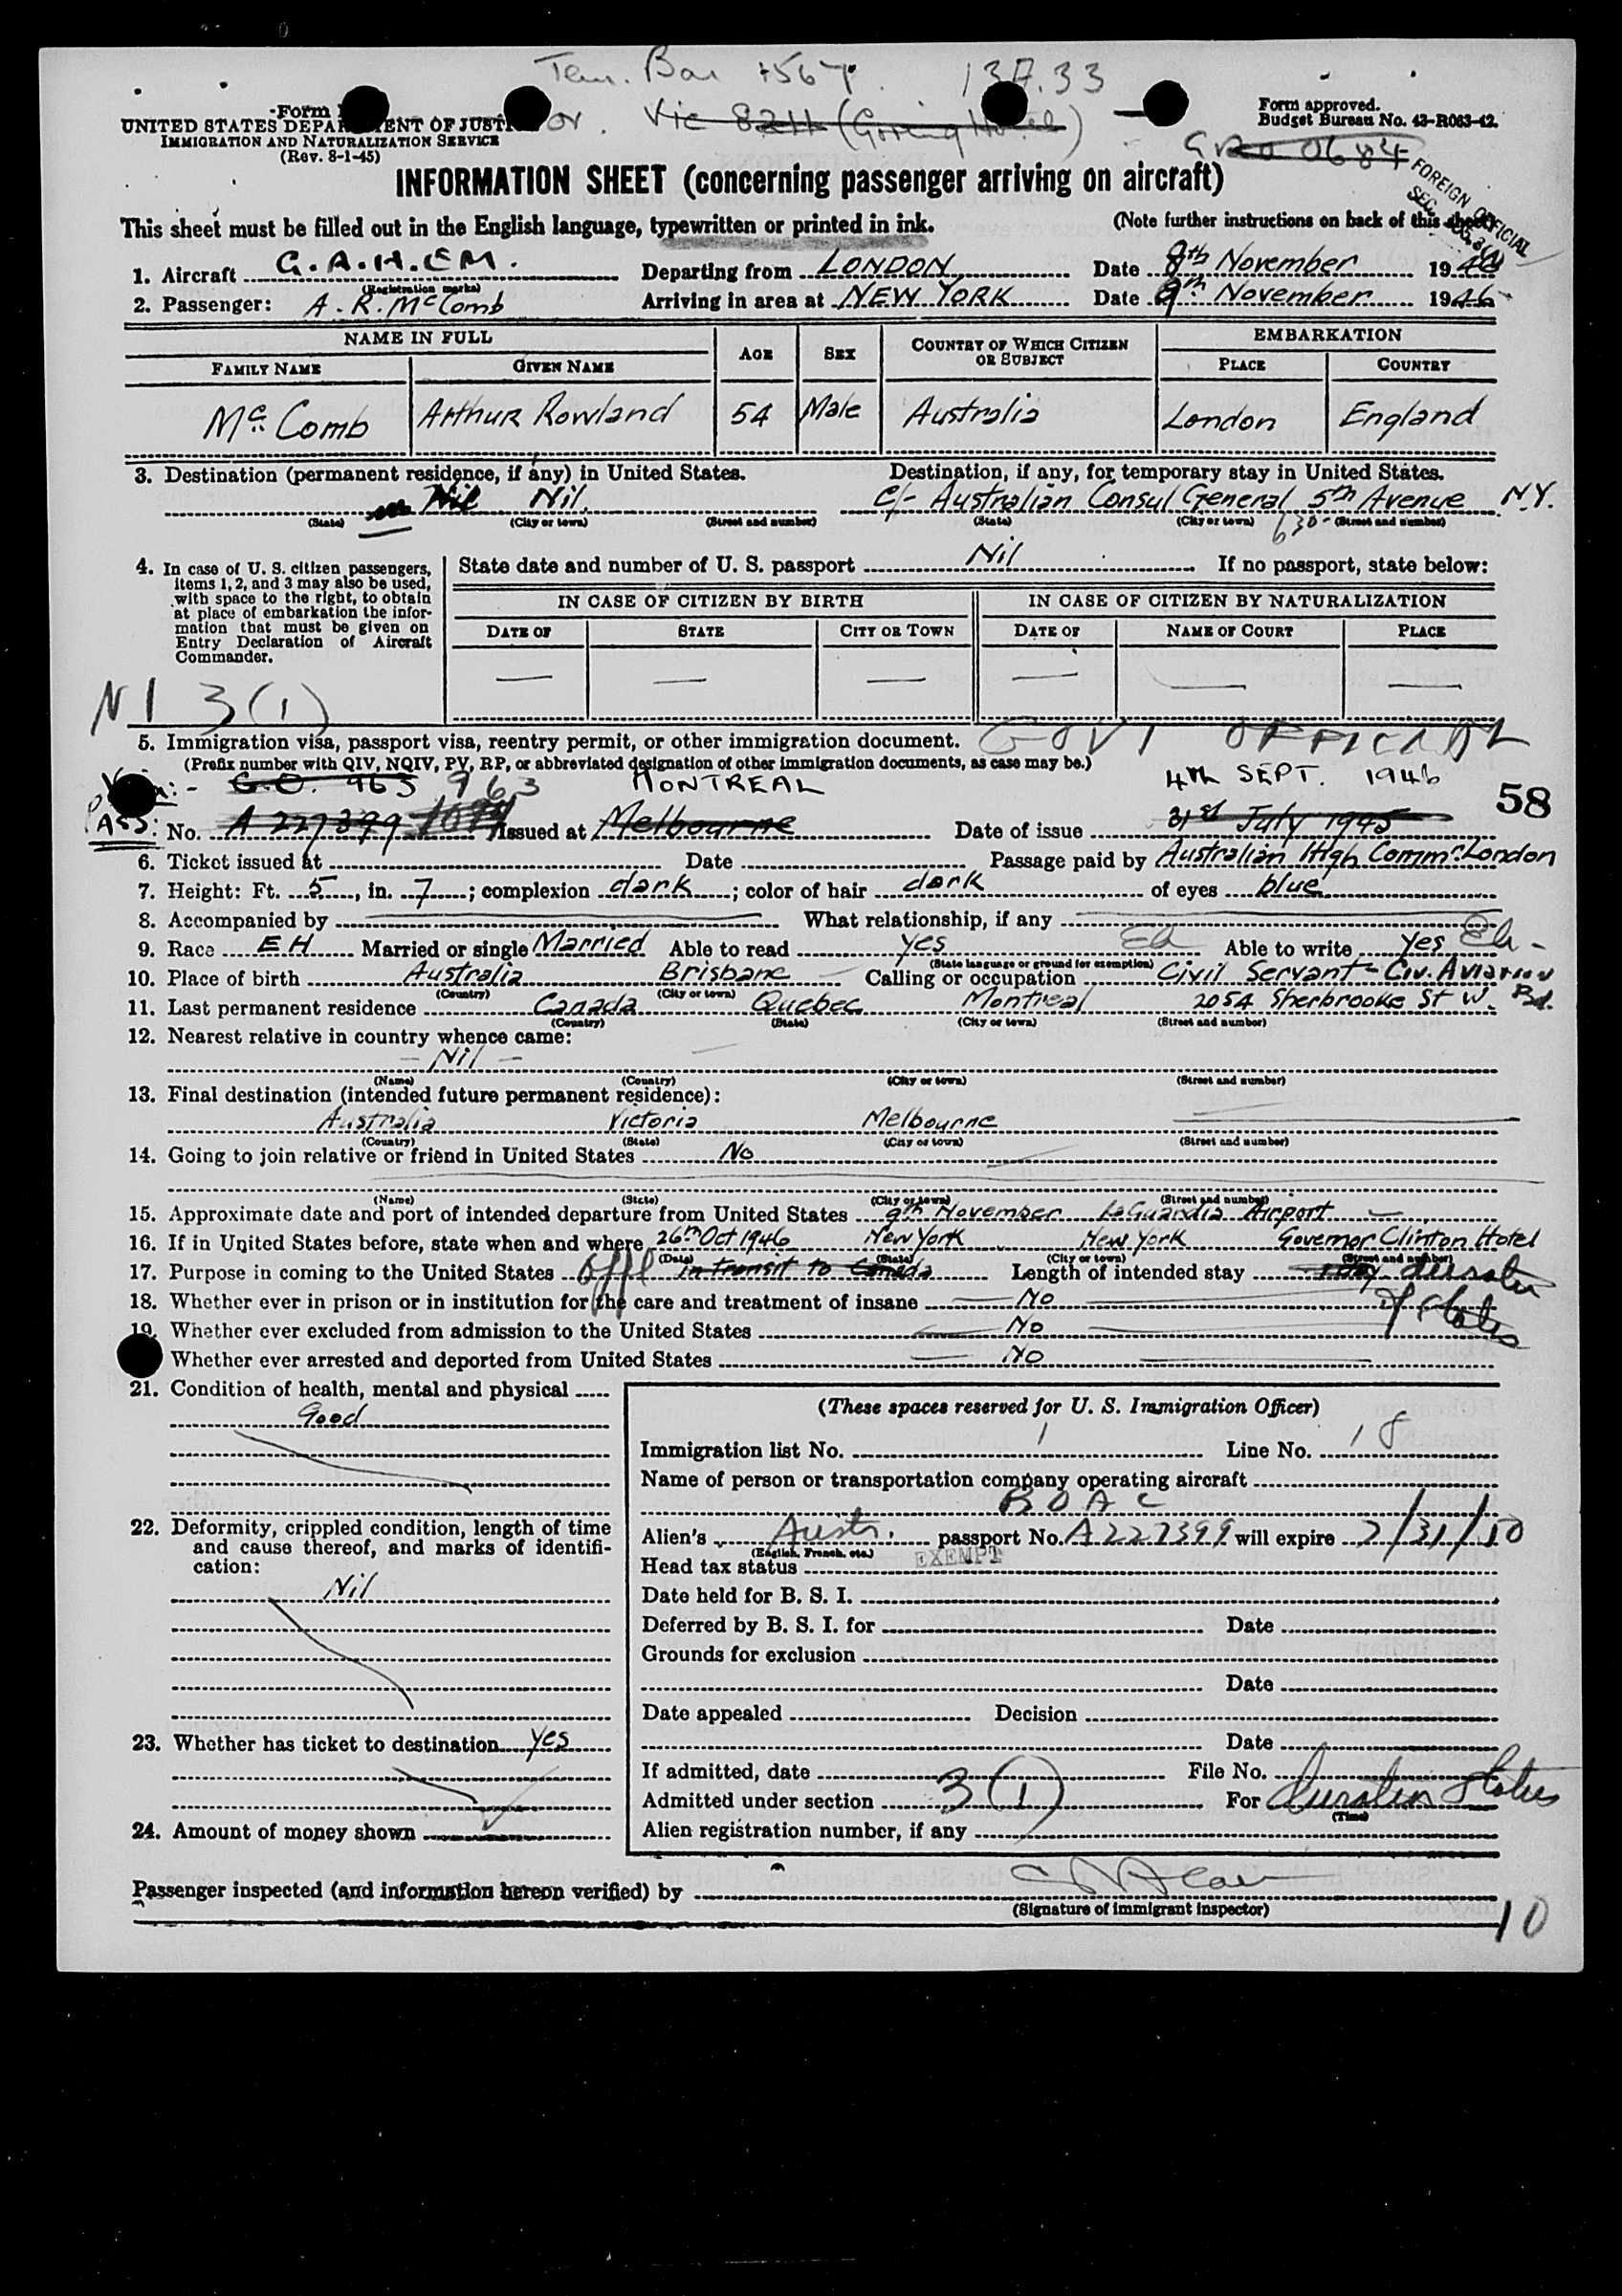 Tem. Bar 
or. Vic (Goring Hotel)
Form
UNITED STATES DEPARTMENT OF JUSTICE
IMMIGRATION AND NATURALIZATION SERVICE
(Rev. 8-1-45)
Form approved.
Budget Bureau No. 43-R063-42.
FOREIGN OFFICIAL
INFORMATION SHEET (concerning passenger arriving on aircraft)
This sheet must be filled out in the English language, typewritten or printed in ink. (Note further instructions on back of this sheet)
1. Aircraft G.A.H.E.M. Departing from LONDON Date 8th November 1946
(Registration marks)
2. Passenger: A. R. McComb Arriving in area at NEW YORK Date 9th November 1946
NAME IN FULL AGE SEX COUNTRY OF WHICH CITIZEN OR SUBJECT EMBARKATION
FAMILY NAME GIVEN NAME PLACE COUNTRY
McComb Arthur Rowland 54 Male Australia London England
3. Destination (permanent residence, if any) in United States. Destination, if any, for temporary stay in United States.
Nil Nil. C/- Australian Consul General 5th Avenue N.Y.
(State) (City or town) (Street and number) (State) (City or town) 630 - (Street and number)
4. In case of U. S. citizen passengers, items 1, 2, and 3 may also be used, with space to the right, to obtain at place of embarkation the information that must be given on Entry Declaration of Aircraft Commander.
State date and number of U. S. passport Nil If no passport, state below:
IN CASE OF CITIZEN BY BIRTH IN CASE OF CITIZEN BY NATURALIZATION
DATE OF STATE CITY OR TOWN DATE OF NAME OF COURT PLACE
N1 3(1)
5. Immigration visa, passport visa, reentry permit, or other immigration document. GOVT OFFICIAL
(Prefix number with QIV, NQIV, PV, RP, or abbreviated designation of other immigration documents, as case may be.)
G.O. 963 963 MONTREAL 4th SEPT. 1946
58
PASS: No. A 227399 Issued at Melbourne Date of issue 31st July 1945
6. Ticket issued at Date Passage paid by Australian High Commr. London
7. Height: Ft. 5, in. 7; complexion dark; color of hair dark of eyes blue
8. Accompanied by What relationship, if any
9. Race EH Married or single Married Able to read Yes Able to write Yes
(State language or ground for exemption)
10. Place of birth Australia Brisbane Calling or occupation Civil Servant - Civ. Aviation Bd.
(Country) (City or town)
11. Last permanent residence Canada Quebec Montreal 2054 Sherbrooke St W.
(Country) (State) (City or town) (Street and number)
12. Nearest relative in country whence came:
- Nil -
(Name) (Country) (City or town) (Street and number)
13. Final destination (intended future permanent residence):
Australia Victoria Melbourne
(Country) (State) (City or town) (Street and number)
14. Going to join relative or friend in United States No
(Name) (State) (City or town) (Street and number)
15. Approximate date and port of intended departure from United States 9th November LaGuardia Airport
16. If in United States before, state when and where 26th Oct 1946 New York New York Governor Clinton Hotel
(Date) (State) (City or town) (Street and number)
17. Purpose in coming to the United States Offl in transit to Canada Length of intended stay duration of status
18. Whether ever in prison or in institution for the care and treatment of insane No
19. Whether ever excluded from admission to the United States No
Whether ever arrested and deported from United States No
21. Condition of health, mental and physical
Good
22. Deformity, crippled condition, length of time and cause thereof, and marks of identification:
Nil
23. Whether has ticket to destination Yes
24. Amount of money shown
(These spaces reserved for U. S. Immigration Officer)
Immigration list No. 1 Line No. 18
Name of person or transportation company operating aircraft
BOAC
Alien's Austr. passport No. A227399 will expire 7/31/50
(English, French, etc.)
Head tax status EXEMPT
Date held for B. S. I.
Deferred by B. S. I. for Date
Grounds for exclusion
Date
Date appealed Decision
Date
If admitted, date File No.
Admitted under section 3(1) For Duration Status
(Time)
Alien registration number, if any
Passenger inspected (and information hereon verified) by
(Signature of immigrant inspector)
10